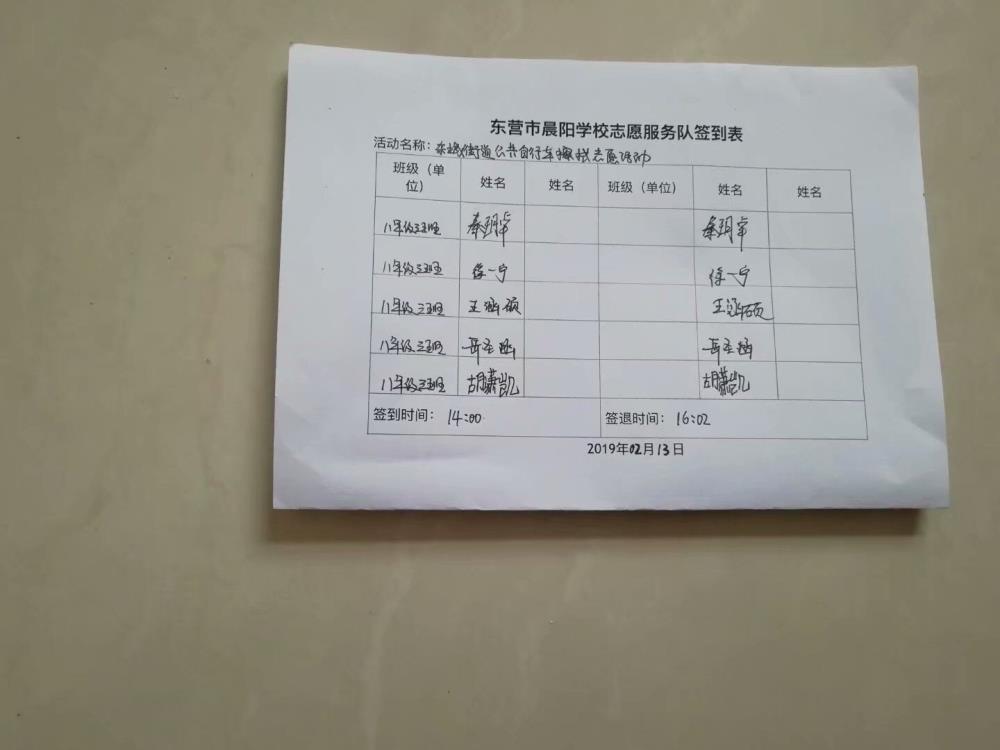 东营市晨阳学校志愿服务队签到表
活动名称：东城街道公共自行车擦拭志愿活动
班级（单位） 姓名 姓名 班级（单位） 姓名 姓名
八年级三班 秦翊卓 秦翊卓
八年级三班 徐一宁 徐一宁
八年级三班 王涵硕 王涵硕
八年级三班 岳圣涵 岳圣涵
八年级三班 胡潇凯 胡潇凯
签到时间：14:00 签退时间：16:02
2019年02月13日